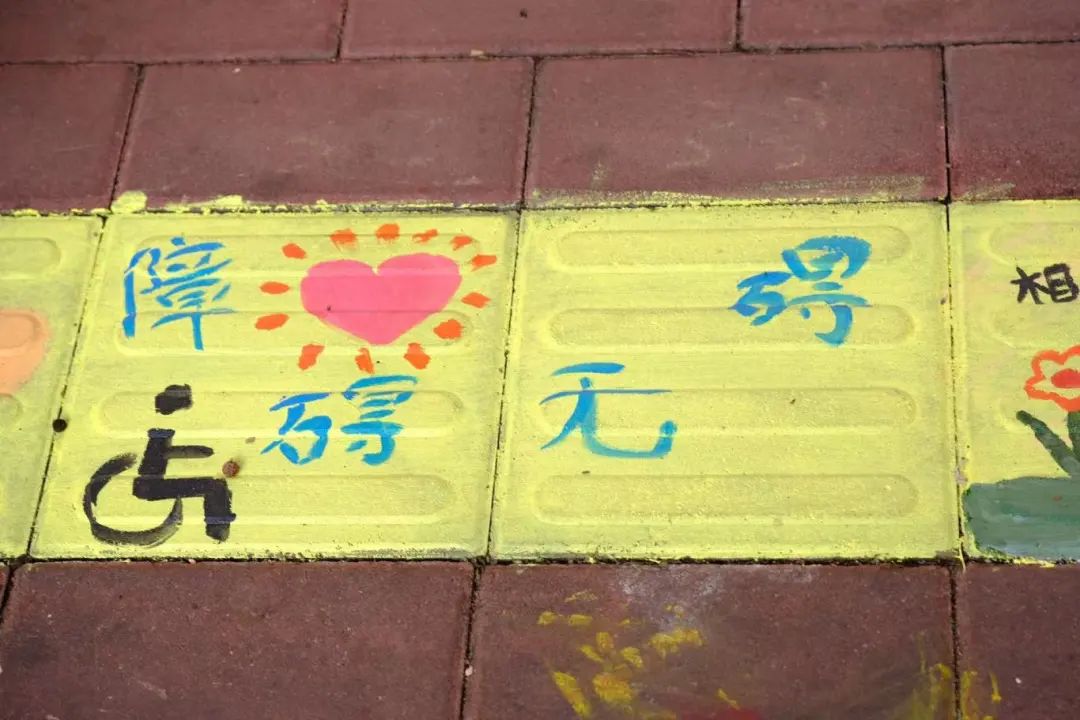 障
碍
碍
无
相